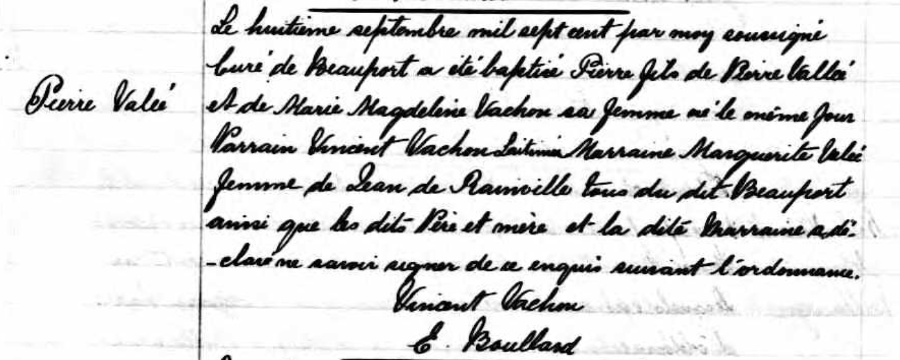 Le huitième septembre mil sept cent par moy soussigné
Curé de Beauport a été baptisé Pierre fils de Pierre Vallée
Pierre Valeé
et de Marie Magdeleine Vachon sa femme né le même jour
Parrain Vincent Vachon Marraine Marguerite Valeé
femme de Jean de Rainville tous du dit Beauport
ainsi que les dits Père et mère et la dite Marraine a dé-
-claré ne savoir signer de ce enquis suivant l'ordonnance.
Vincent Vachon
E. Boullard